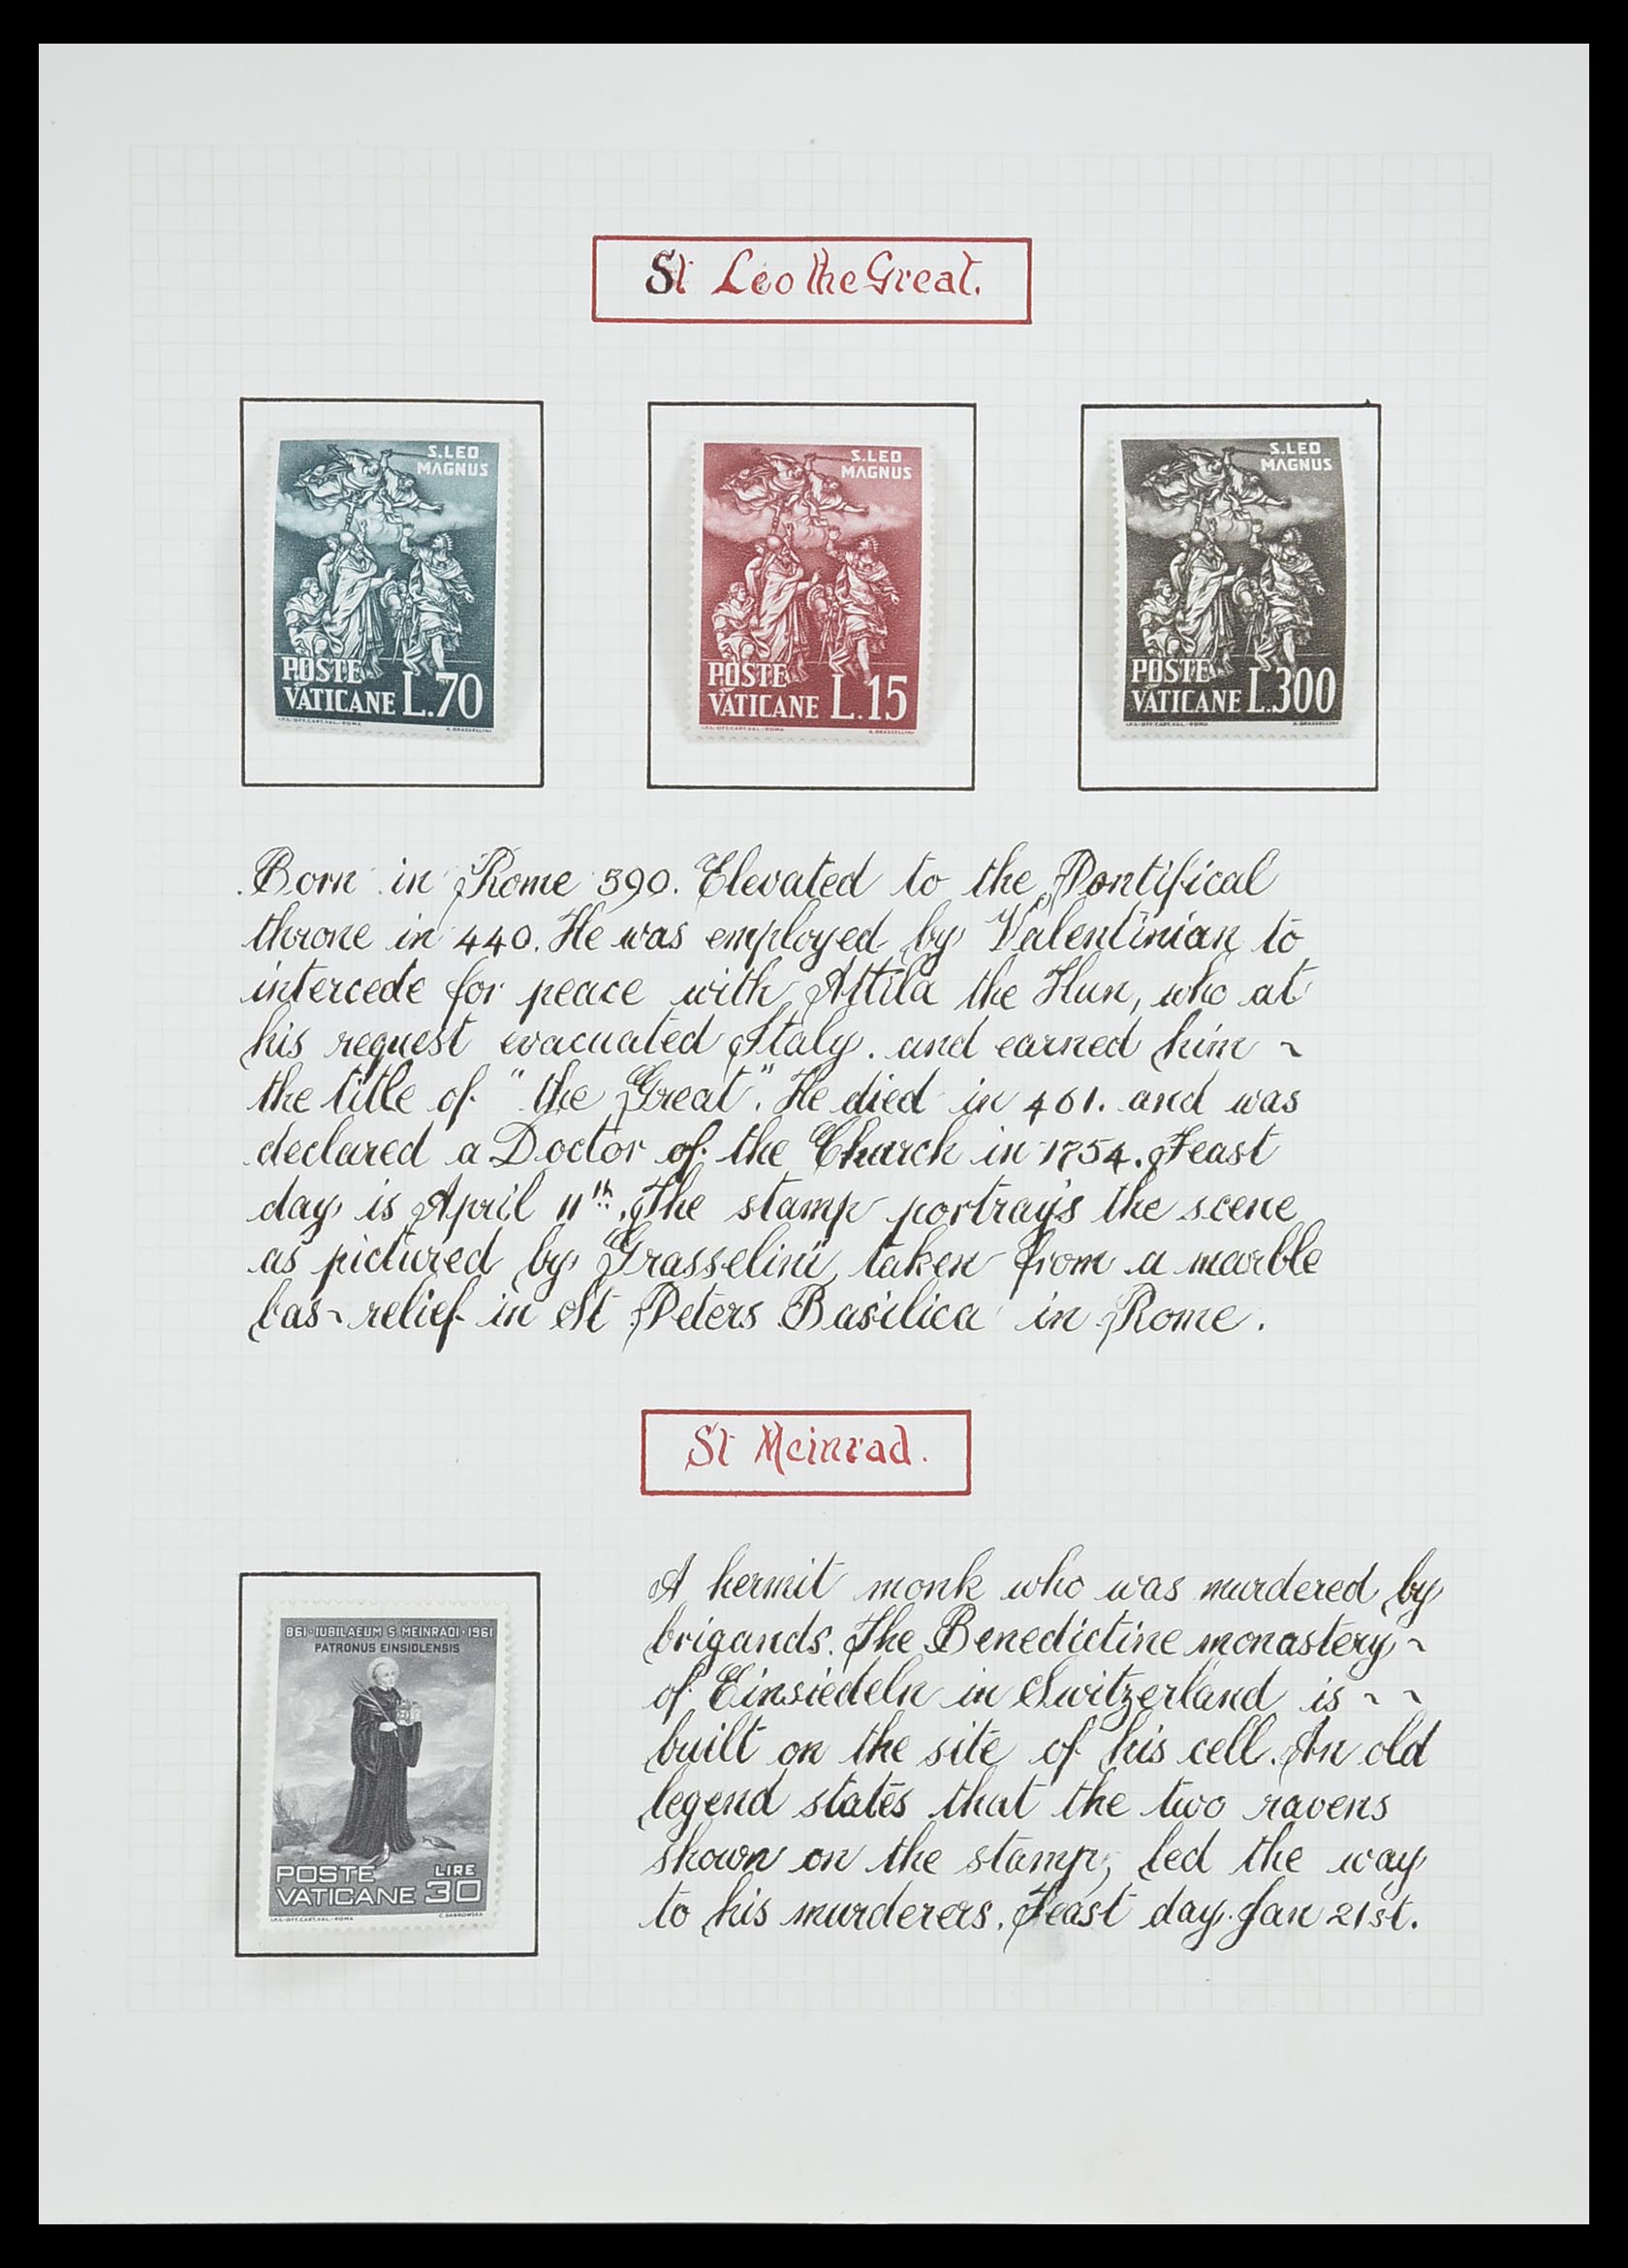 St Leo the Great.
S.LEO
MAGNUS
POSTE
VATICANE L.70
I.P.S.-OFF.CART.VAL.-ROMA A.GRASSELLINI
S.LEO
MAGNUS
POSTE
VATICANE L.15
I.P.S.-OFF.CART.VAL.-ROMA A.GRASSELLINI
S.LEO
MAGNUS
POSTE
VATICANE L.300
I.P.S.-OFF.CART.VAL.-ROMA A.GRASSELLINI
Born in Rome 390. Elevated to the Pontifical
throne in 440. He was employed by Valentinian to
intercede for peace with Attila the Hun, who at
his request evacuated Italy. and earned him ~
the title of "the Great". He died in 461. and was
declared a Doctor of the Church in 1754. Feast
day is April 11th. The stamp portrays the scene
as pictured by Grasselini, taken from a marble
bas~relief in St Peters Basilica in Rome.
St Meinrad.
861·IUBILAEUM S.MEINRADI·1961
PATRONUS EINSIDLENSIS
POSTE LIRE
VATICANE 30
I.P.S.-OFF.CART.VAL.-ROMA C.DABROWSKA
A hermit monk who was murdered by
brigands. The Benedictine monastery ~
of Einsiedeln in Switzerland is ~ ~
built on the site of his cell. An old
legend states that the two ravens
shown on the stamp, led the way
to his murderers. Feast day. Jan 21st.